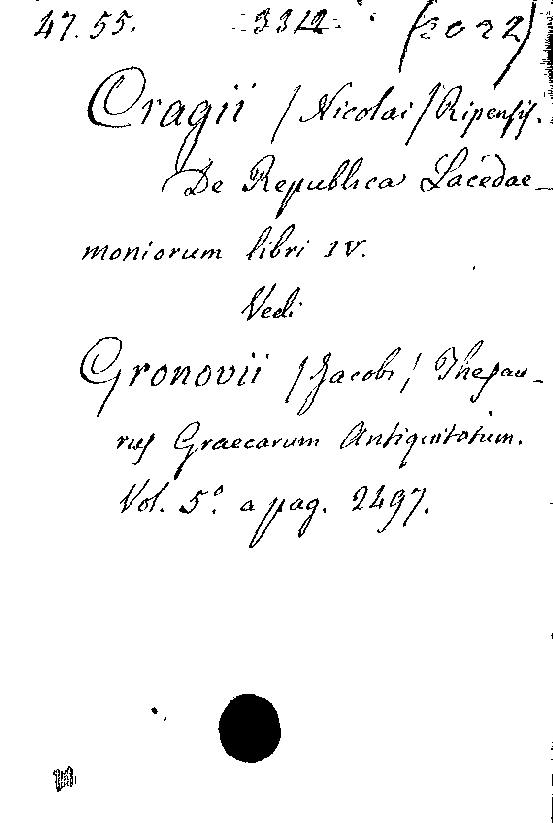 47. 55. 3312 (2022)
Cragii /Nicolai/ Ripensis.
De Republica Lacedae-
moniorum libri IV.
Vedi
Gronovii /Jacobi/ Thesau-
rus Graecarum Antiquitatum.
Vol. 5.º a pag. 2497.